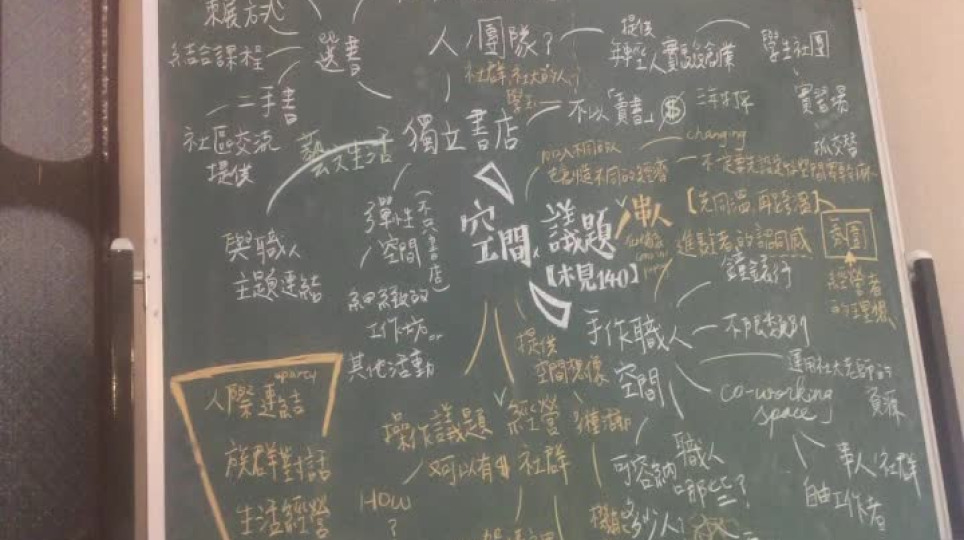 策展方式
結合課程
選書
二手書
社區交流
提供
藝文生活
與職人
主題連結
人/團隊?
社群,社大的人,
學生
提供
年輕人實驗創業
學生社團
實習場
獨立書店
不以「賣書」$
changing
加入不同的人
也創造不同的經濟
空間、議題
【未見140】
串人
【先同溫,再跨溫】
進計者的認同感
氛圍
經營者
的理想
彈性
空間
(不只書店)
細緻的
工作坊or
其他活動
手作職人
空間
鐘錶行
不限類別
運用社大老師的
資源
co-working
space
串人/社群
自由工作者
職人
可容納哪些?
多少人?
提供
空間想像
經營
社群
操作議題
又可以有$
HOW
?
aparty
人際連結
族群對話
生活經營